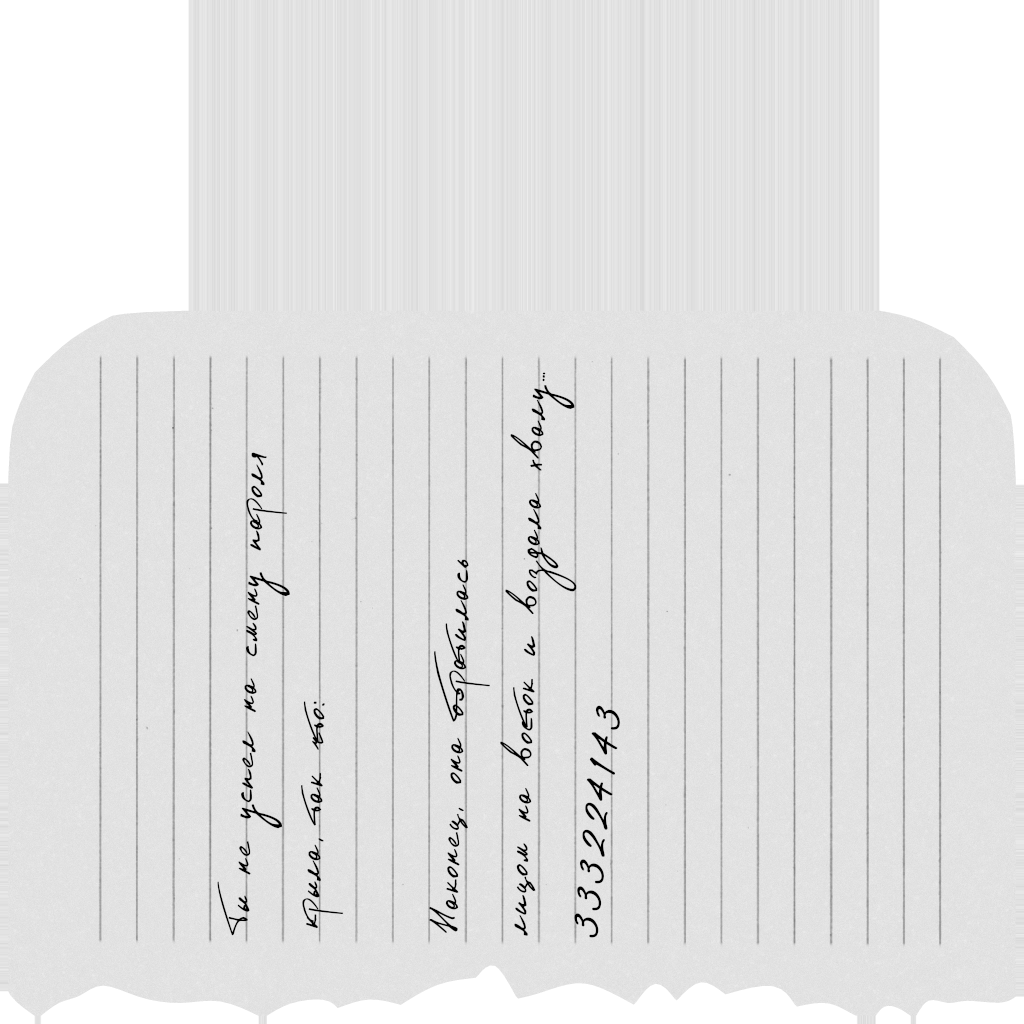 Ты не успел на смену пароля
крыла, так что:
Наконец, она обратилась
лицом на восток и воздала хвалу...
333224143